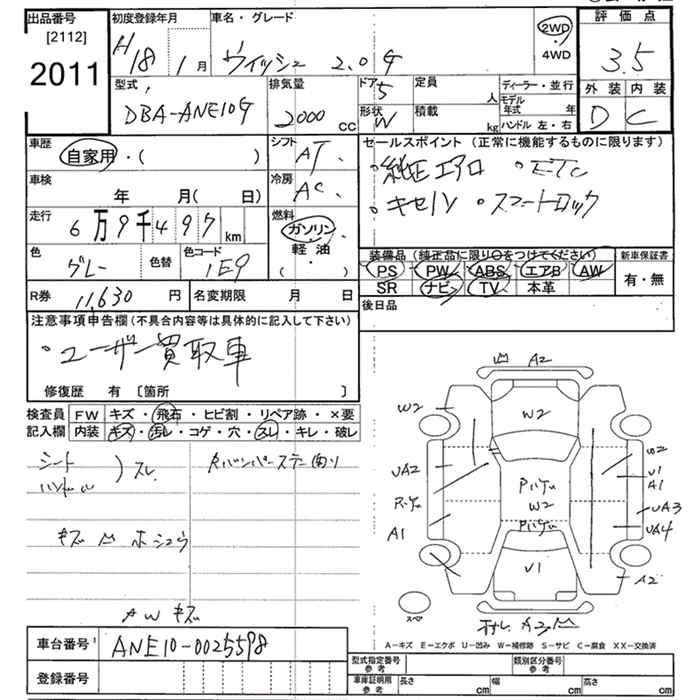 出品番号 初度登録年月 車名・グレード 2WD ・ 4WD 評価点
[2112]
2011 H18 1月 ウィッシュ 2.0G 3.5
型式 排気量 ドア 定員 ディーラー・並行 外装 内装
DBA-ANE10G 2000 CC 5 人 モデル年式 年 D C
形状 積載 W kg ハンドル 左・右
車歴 シフト セールスポイント(正常に機能するものに限ります)
自家用・( ) AT. ・純正エアロ ・ETC
車検 冷房 ・キセノン ・スマートロック
年 月( 日) AC.
走行 燃料
6万9千497 km ガソリン・軽油・( )
色 色替 色コード 装備品(純正品に限り○をつけてください) 新車保証書
グレー 1E9 PS PW ABS エアB AW 有・無
R券 11,630 円 名変期限 月 日 SR ナビ TV 本革
注意事項申告欄(不具合内容等は具体的に記入して下さい) 後日品
・ユーザー買取車
修復歴 有 〔箇所 〕
検査員 FW キズ・飛石・ヒビ割・リペア跡・×要
記入欄 内装 キズ・汚レ・コゲ・穴・スレ・キレ・破レ
シート
ハンドル )スレ
Rバンパーステー曲り
キズ 凹 ホシュウ
AW キズ
凹 A2
W2 W2
UA2 W2
Pパイケイ U1
A1
W2 UA3
A1 UA4
U1 A2
スペア
A-キズ E-エクボ U-凹み W-補修跡 S-サビ C-腐食 XX-交換済
車台番号 ANE10-0025598
登録番号
型式指定番号 参考 類別区分番号 参考
車庫証明用 参考 長さ cm 幅 cm 高さ cm